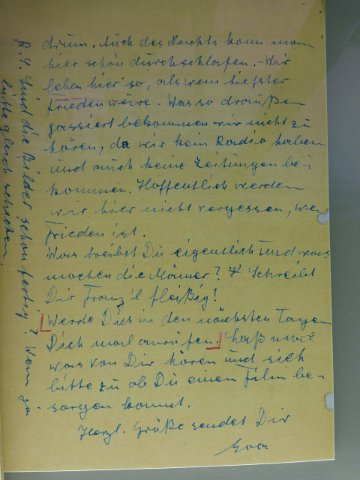 drum. Auch des Nachts kann man
hier schön durchschlafen. Wir
leben hier so, als wenn tiefster
Frieden wäre. Was so draußen
passiert bekommen wir nicht zu
hören, da wir kein Radio haben
und auch keine Zeitungen be-
kommen. Hoffentlich werden
wir hier nicht vergessen, wenn
Frieden ist.
Was treibst Du eigentlich und was
machen die Männer? Schreibt
Dir Franz'l fleißig?
[Werde Dich in den nächsten Tagen
Dich mal anrufen.] Laß mal
was von Dir hören und sieh
bitte zu ob Du einen Film be-
sorgen kannst.
Herzl. Grüße sendet Dir
Eva
P.S. Sind die Bilder schon fertig? Wenn ja
bitte gleich schicken.